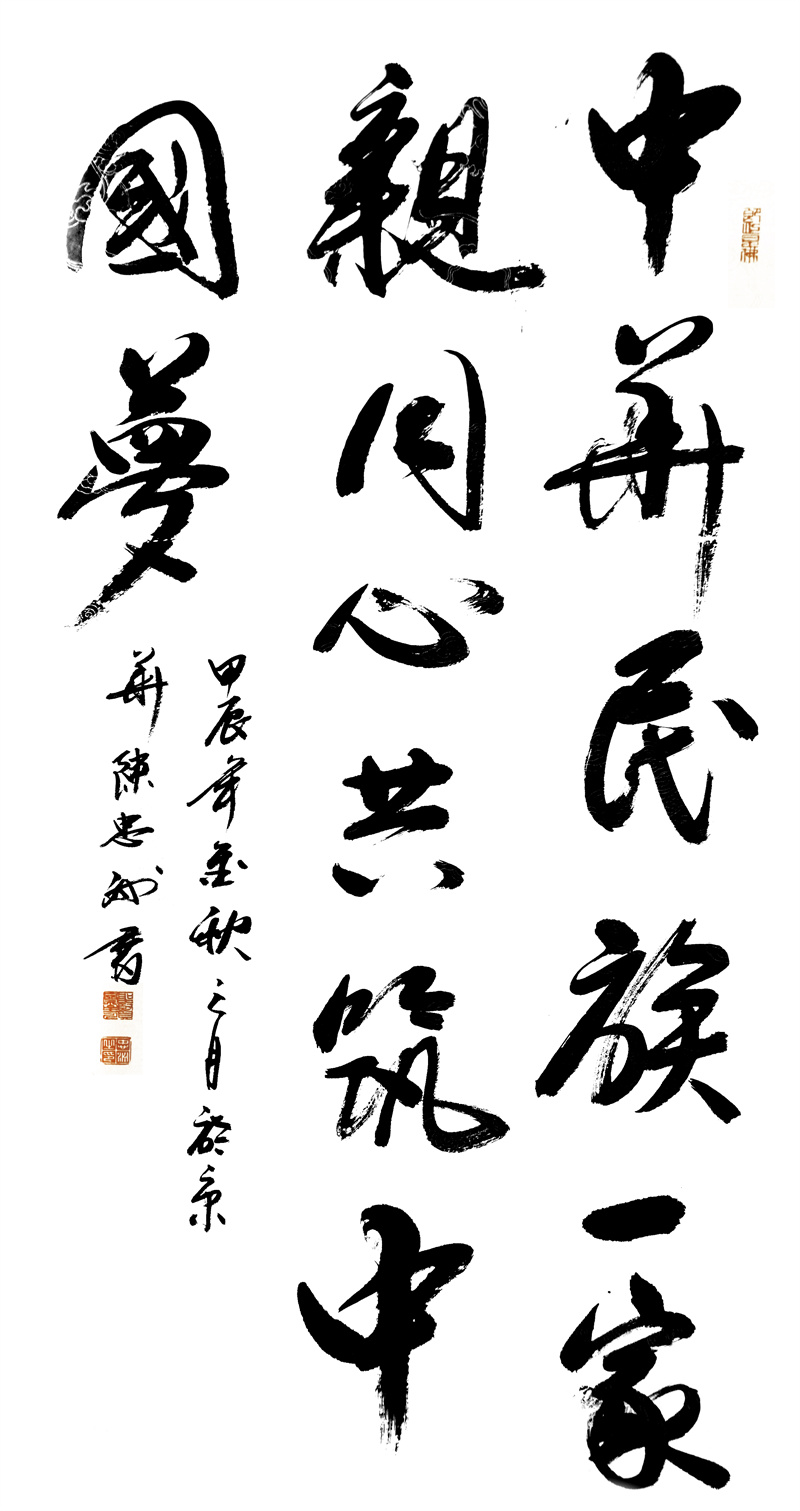 中華民族一家
親同心共筑中
國夢
甲辰年金秋之月於京
華陳忠洲書